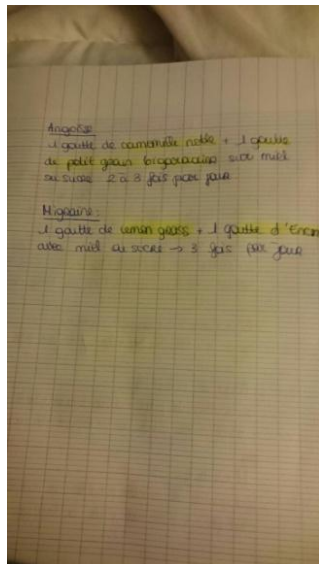 Angoisse
1 goutte de camomille noble + 1 goutte
de petit grain bigaradier sur miel
ou sucre 2 à 3 fois par jour
Migraine :
1 goutte de lemon grass + 1 goutte d'Encen
avec miel ou sucre → 3 fois par jour